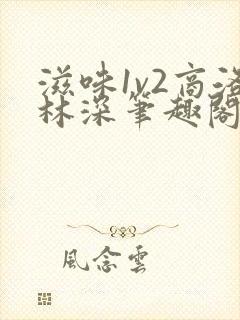 滋味1v2高洛
林深笔趣閣
風念雲